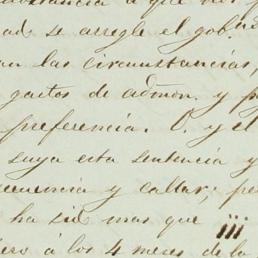 á que
se arregle el gob.no
las circunstancias,
gastos de admon. y
preferencia. O. y el
suya esta sentencia y
y callar; pe
ha sid mas que iii
á los 4 meses de la